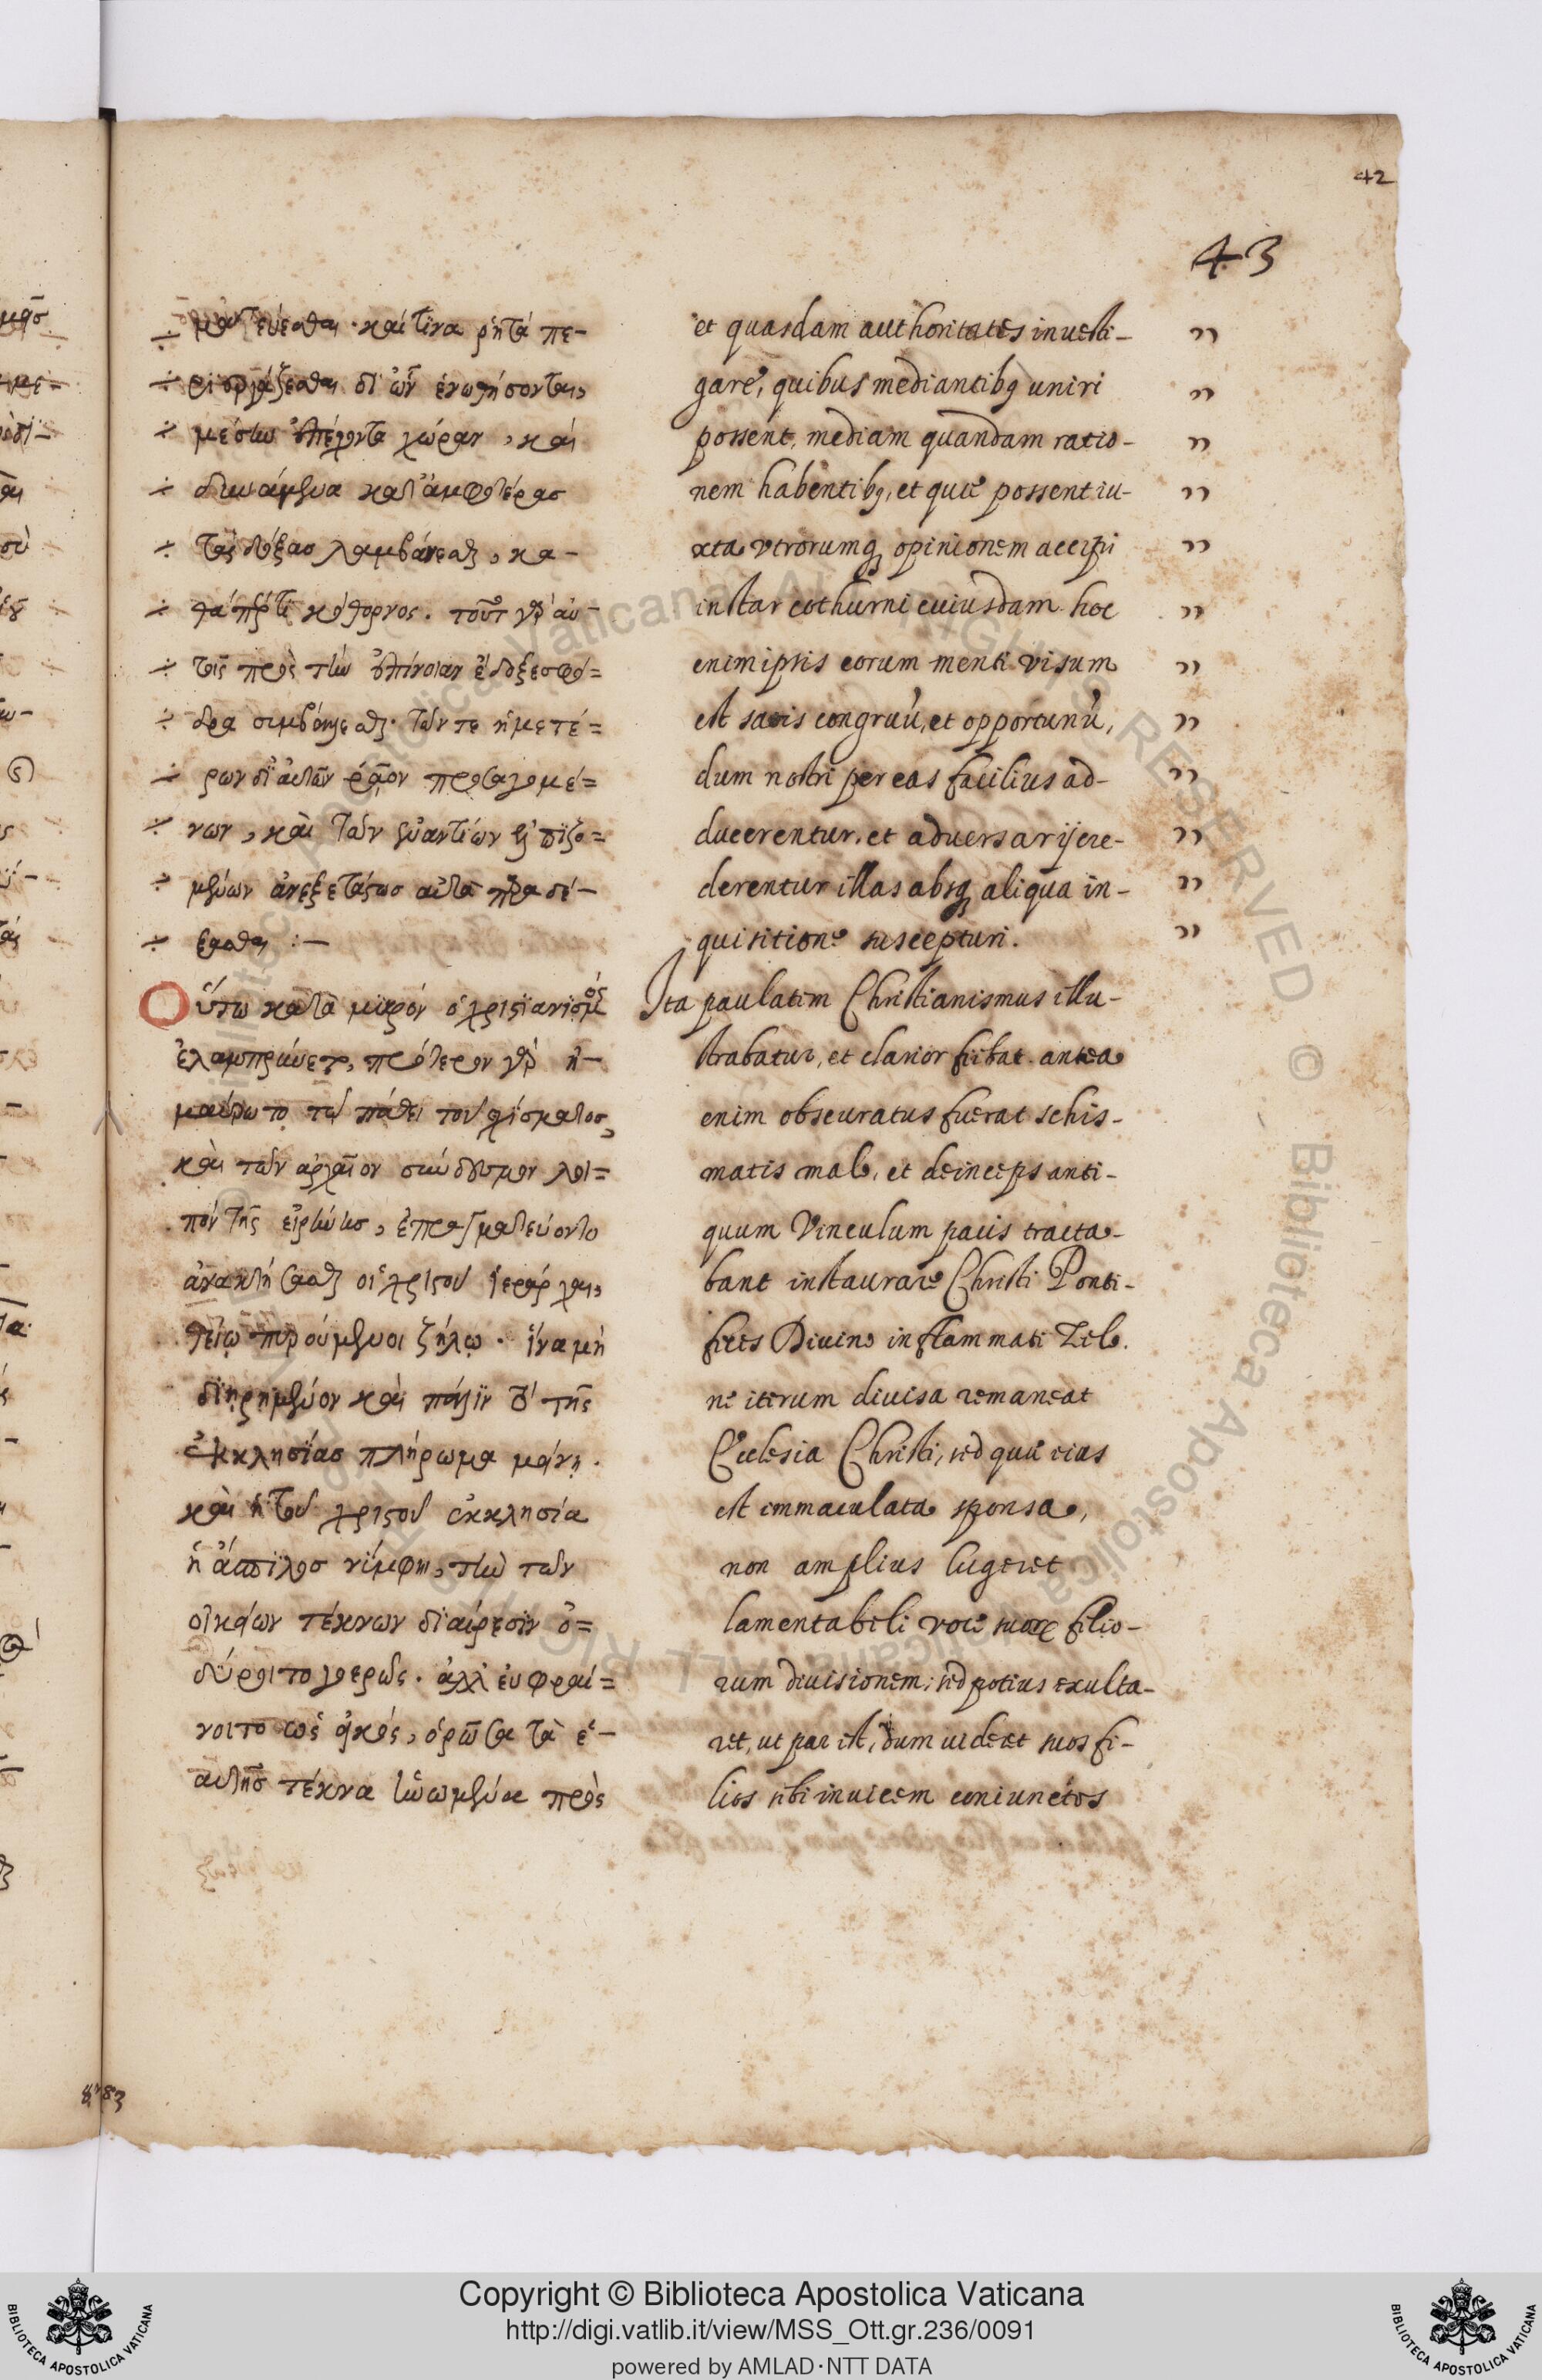 42
43
μαντεύεσθαι· καὶ τϊνα ρητὰ πε-
ριεργάζεσθαι δι' ὧν ἑνωθήσονται,
μέσην ἐπέχοντα χώραν, καὶ
δυνάμενα κατ' ἀμφοτέρας
τὰς δόξας λαμβάνεσθαι, κα-
θάπερ τὶ κόθορνος. τοῦτο γὰρ αὐ-
τοῖς πρὸς τὴν ἐπίνοιαν ἔδοξε σφό=
δρα συμβαίνεσθαι. τῶν τε ἡμετέ=
ρων δι' αὐτῶν ρᾷον προσαγομέ=
νων, καὶ τῶν ἐναντίων
μένων ἀνεξετάστως αὐτὰ παρα δέ-
ξασθαι :—
Οὕτω κατὰ μικρὸν ὁ χριστιανισμὸς
ἐλαμπρύνετο, πρότερον γὰρ ἠ-
μαύρωτο τῷ πάθει τοῦ σχίσματος,
καὶ τὸν ἀρχαῖον σύνδεσμον λοι=
πὸν τῆς εἰρήνης, ἐπραγματεύοντο
ἀνακτήσασθαι οἱ χριστοῦ ἱεράρχαι,
θείῳ πυρούμενοι ζήλῳ· ἵνα μὴ
διῃρημένον καὶ πάλϊν τὸ τῆς
ἐκκλησίας πλήρωμα μένῃ.
καὶ ἡ τοῦ χριστοῦ ἐκκλησία
ἡ ἄσπϊλος νύμφη, τὴν τῶν
οἰκείων τέκνων διαίρεσϊν ὀ=
δύροιτο γοερῶς. ἀλλ' εὐφραί=
νοιτο ὡς εἰκός, ὁρῶσα τὰ ἑ-
αυτῆς τέκνα ἑνωμένα πρὸς
et quasdam authoritates inuesti-
gare, quibus mediantibq uniri
possent, mediam quandam ratio-
nem habentibq, et quæ possent iu-
xta vtrorumq opinionem accipi
instar cothurni cuiusdam. hoc
enim ipsis eorum menti visum
est satis congruũ, et opportunũ,
dum nostri per eas facilius ad-
ducerentur, et aduersarij cre-
derentur illas absq aliqua in-
quisitione suscepturi.
Ita paulatim Christianismus illu-
strabatur, et clarior fiebat. antea
enim obscuratus fuerat schis-
matis malo, et deinceps anti-
quum vinculum pacis tracta-
bant instaurare Christi Ponti-
fices Diuino inflammati Zelo.
ne iterum diuisa remaneat
Ecclesia Christi, sed quæ eius
est immaculata sponsa,
non amplius lugeret
lamentabili voce suorum filio-
rum diuisionem; sed potius exulta-
ret, ut par est, dum uideret suos fi-
lios sibi inuicem coniunctos
Copyright © Biblioteca Apostolica Vaticana
http://digi.vatlib.it/view/MSS_Ott.gr.236/0091
powered by AMLAD·NTT DATA
BIBLIOTECA APOSTOLICA VATICANA
BIBLIOTECA APOSTOLICA VATICANA